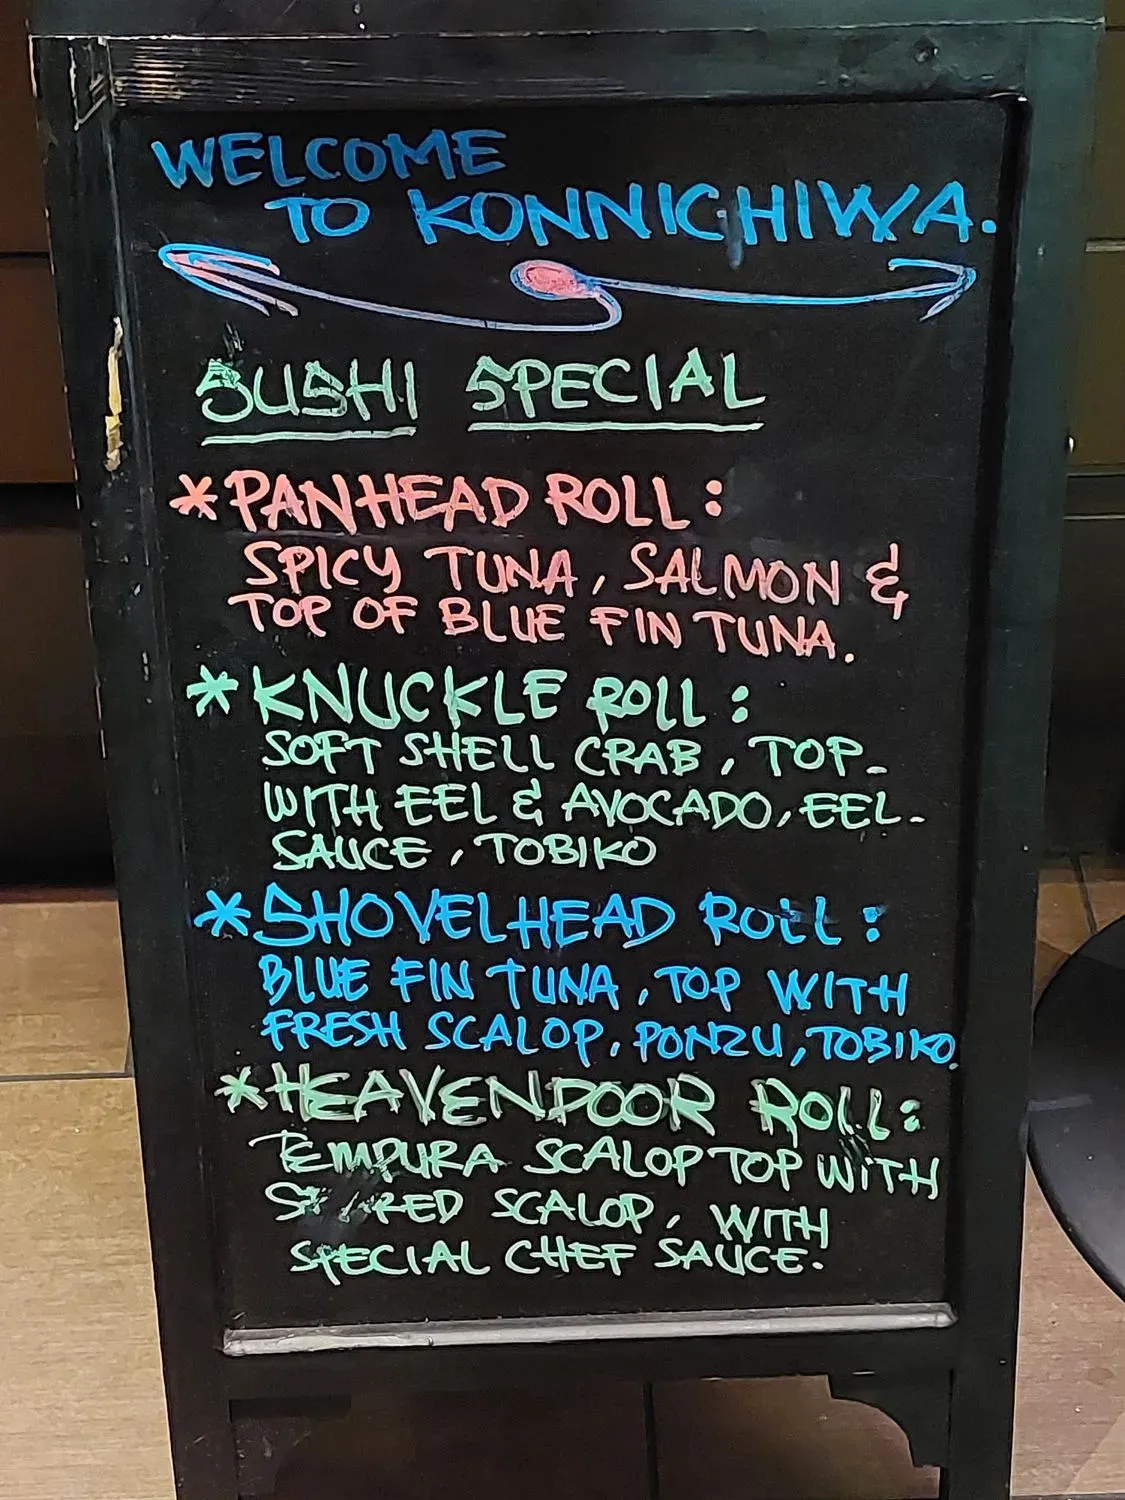 WELCOME
TO KONNICHIWA.
SUSHI SPECIAL
*PANHEAD ROLL:
SPICY TUNA, SALMON &
TOP OF BLUE FIN TUNA.
*KNUCKLE ROLL:
SOFT SHELL CRAB, TOP-
WITH EEL & AVOCADO, EEL-
SAUCE, TOBIKO
*SHOVELHEAD ROLL:
BLUE FIN TUNA, TOP WITH
FRESH SCALOP, PONZU, TOBIKO.
*HEAVENDOOR ROLL:
TEMPURA SCALOP TOP WITH
SCALOP, WITH
SPECIAL CHEF SAUCE.